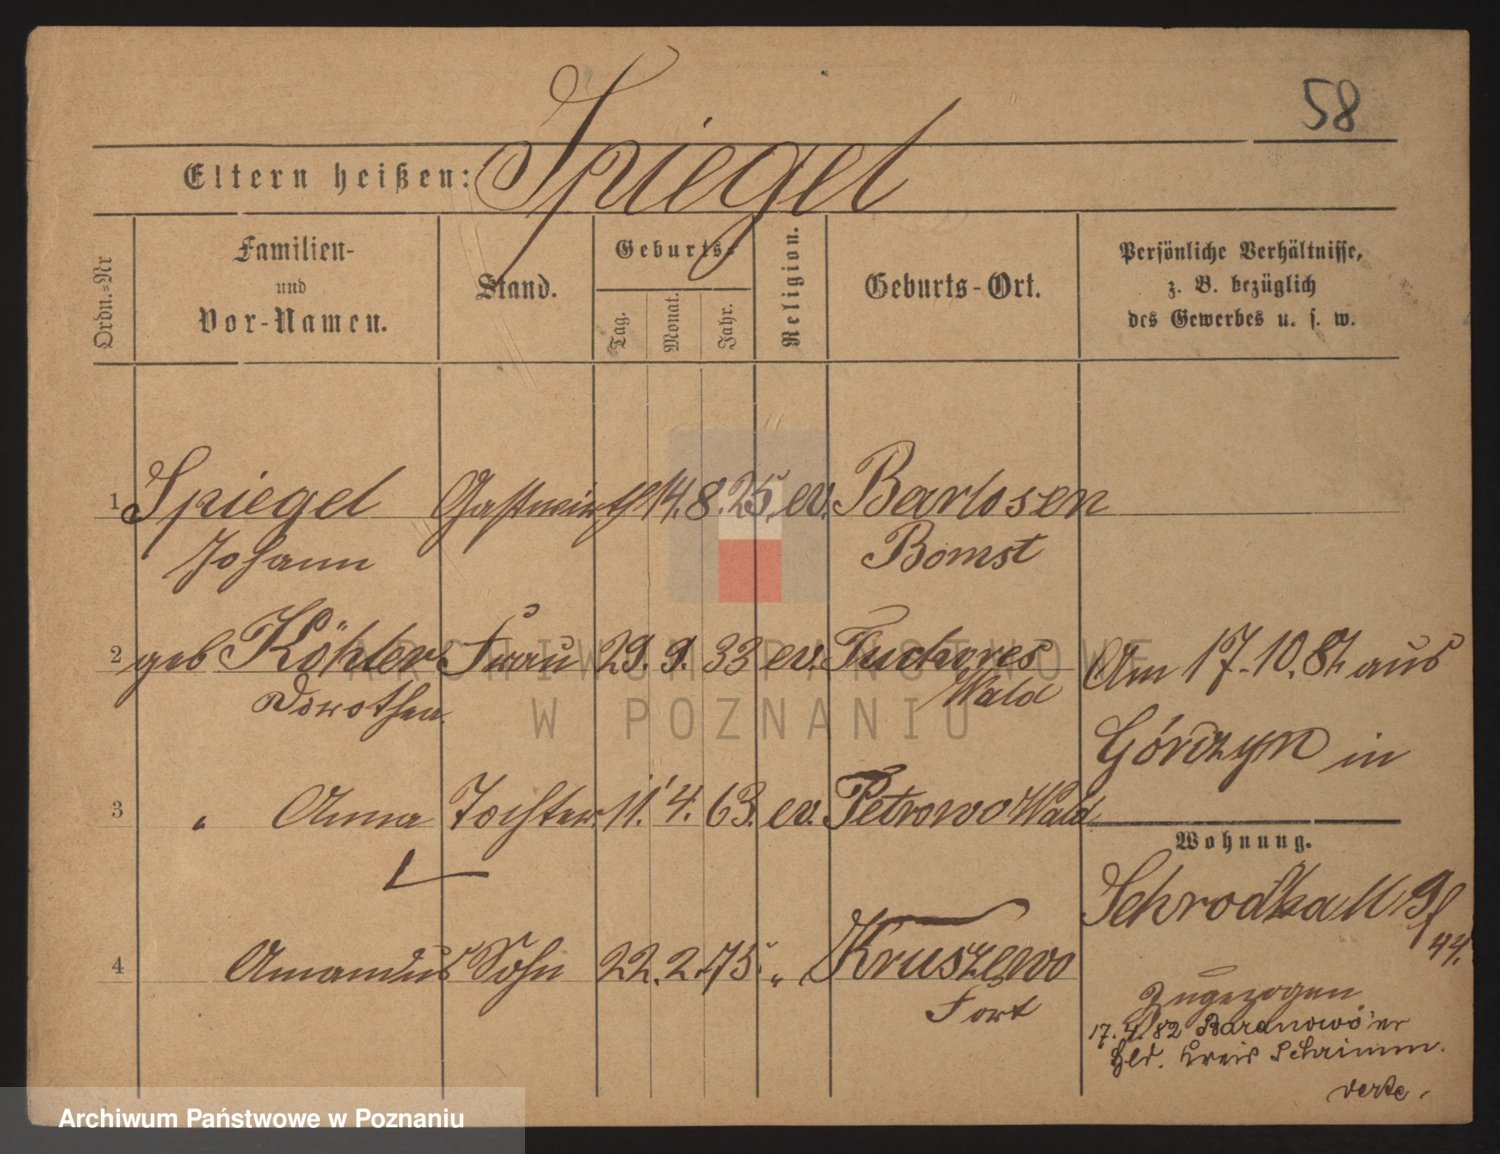 58
Eltern heißen: Spiegel
Ordn.-Nr
Familien-
und
Vor-Namen.
Stand.
Geburts-
Tag.
Monat.
Jahr.
Religion.
Geburts-Ort.
Persönliche Verhältnisse,
z. B. bezüglich
des Gewerbes u. s. w.
1 Spiegel Gastwirth 14. 8. 25. ev. Barlosen
Johann Bomst
2 geb Köhler Frau 29. 9. 33 ev. Tuchores
Dorothea Wald
Am 17.10.81 aus
Górczyn in
3 " Anna Tochter 11. 4. 63. ev. Petrowo Wald
Wohnung.
Schrodka
4 Amandus Sohn 22. 2. 75. " Kruszewo
Fort
44.
Zugezogen
17. 4. 82 Baranowo'er
Hld. Kreis Schrimm.
verte.
ARCHIWUM PAŃSTWOWE
W POZNANIU
Archiwum Państwowe w Poznaniu